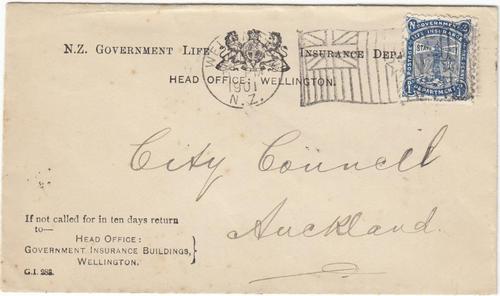 N.Z. GOVERNMENT LIFE INSURANCE
HEAD OFFICE: WELLINGTON.
1901
N.Z.
LIFE INSURANCE
DEPARTMENT
City Council
Auckland.
If not called for in ten days return
to—
HEAD OFFICE:
GOVERNMENT INSURANCE BUILDINGS,
WELLINGTON.
G.I. 283.